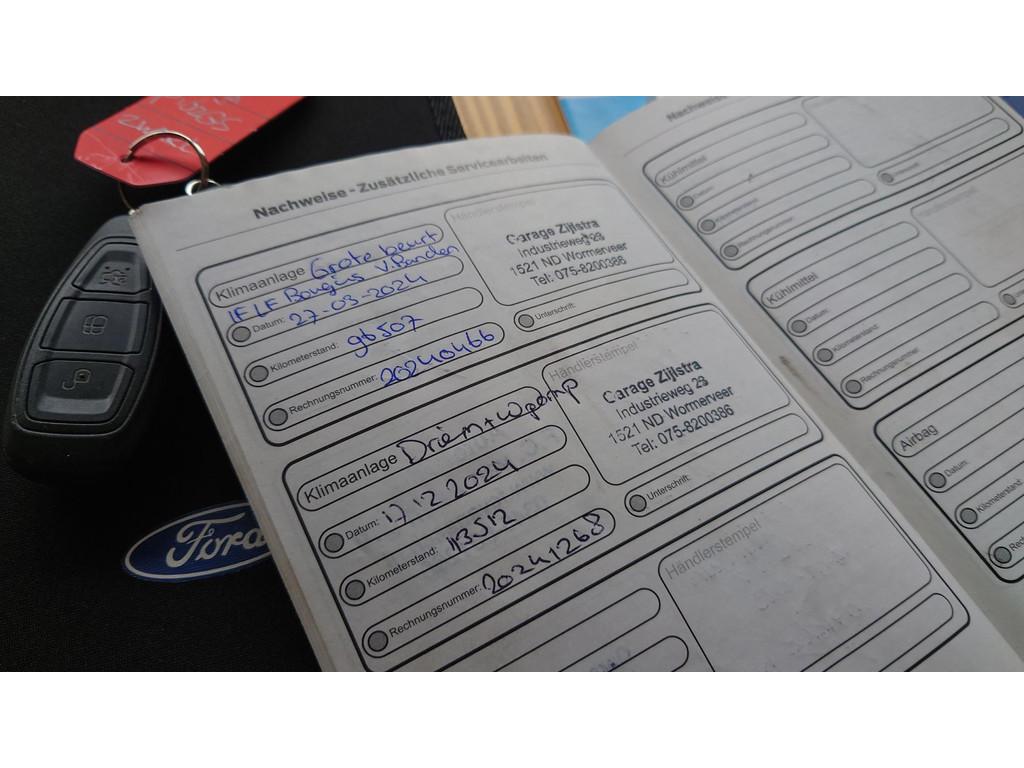 Nachweise - Zusätzliche Servicearbeiten
Klimaanlage Grote beurt
Datum: 27-03-2024
Kilometerstand: 96507
Rechnungsnummer: 20240466
Händlerstempel
Garage Zijlstra
Industrieweg 28
1521 ND Wormerveer
Tel: 075-8200386
Unterschrift:
Klimaanlage Driem + wpomp
Datum: 17 12 2024
Kilometerstand: 113512
Rechnungsnummer: 20241268
Händlerstempel
Garage Zijlstra
Industrieweg 28
1521 ND Wormerveer
Tel: 075-8200386
Unterschrift:
Händlerstempel
Nachweise
Kühlmittel
Datum:
Kilometerstand:
Rechnungsnummer:
Kühlmittel
Datum:
Kilometerstand:
Rechnungsnummer:
Händlerstempel
Airbag
Datum:
Kilometerstand:
Ford